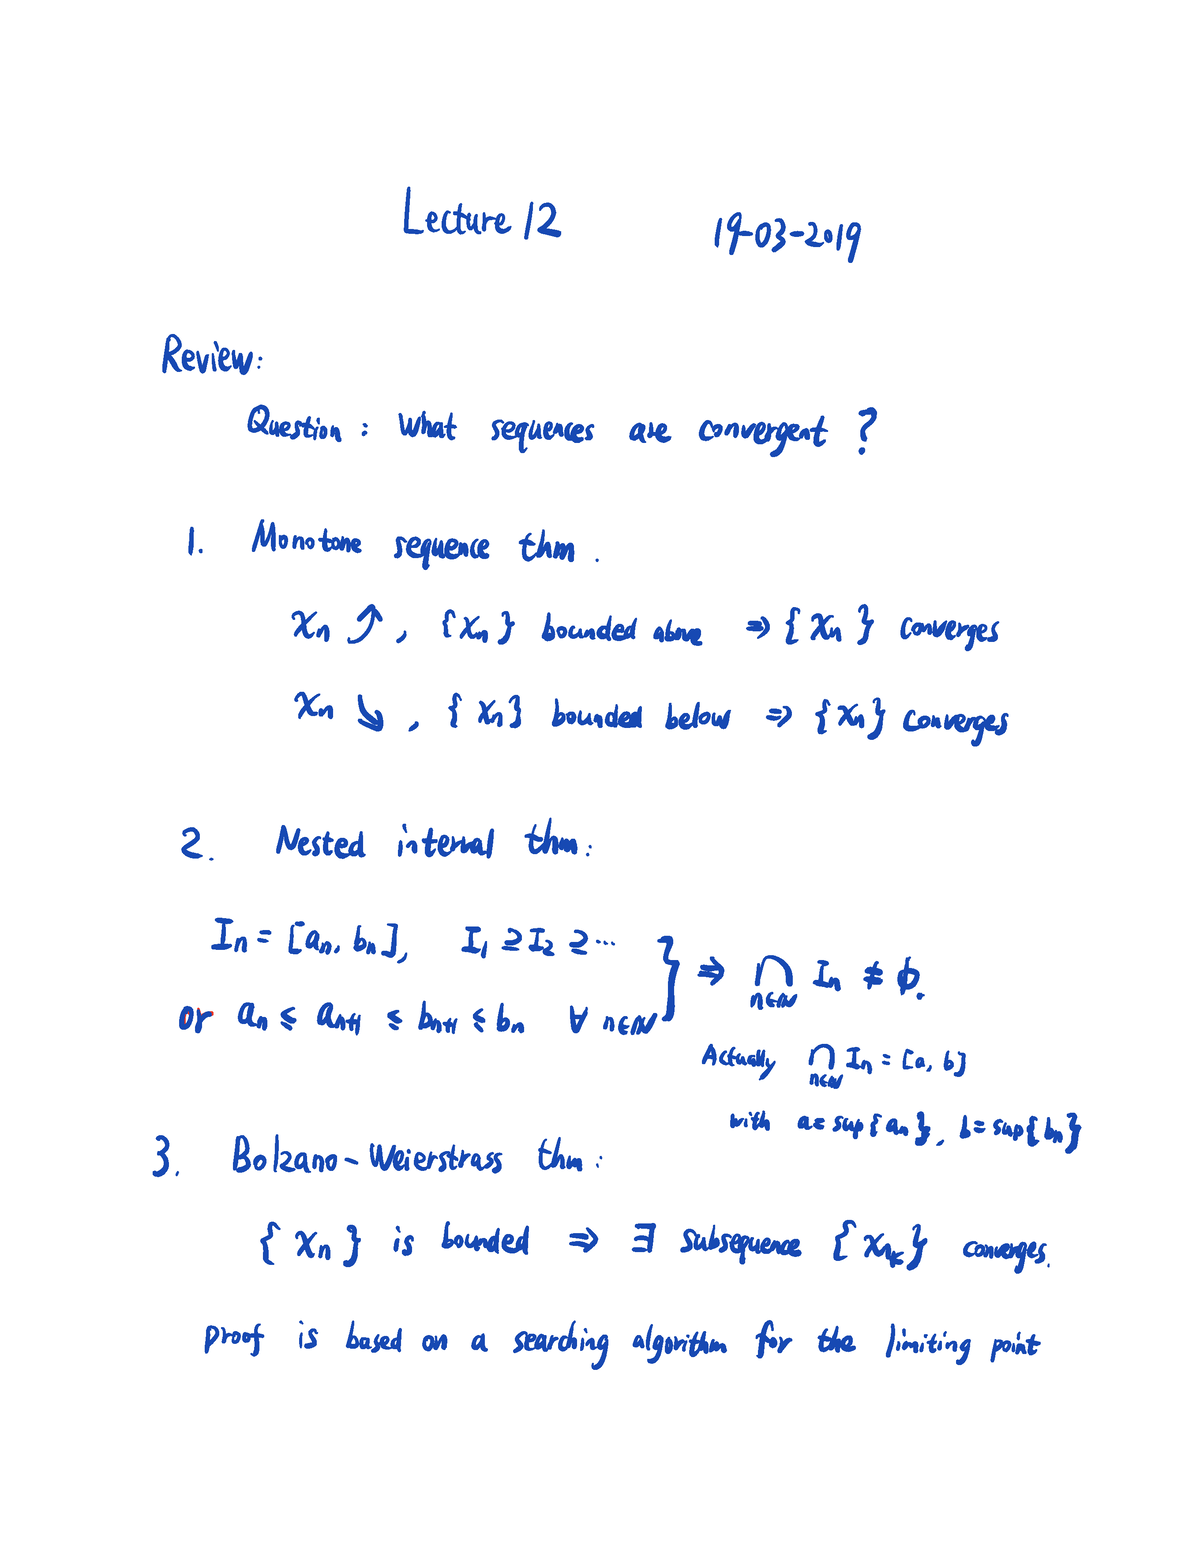 Lecture 12 19-03-2019
Review:
Question: What sequences are convergent ?
1. Monotone sequence thm.
xn ↗, {xn} bounded above ⇒ {xn} converges
xn ↘, {xn} bounded below ⇒ {xn} converges
2. Nested interval thm:
In = [an, bn], I1 ⊇ I2 ⊇ ...
or an ≤ an+1 ≤ bn+1 ≤ bn ∀ n∈ℕ } ⇒ ⋂n∈ℕ In ≠ ϕ.
Actually ⋂n∈ℕ In = [a, b]
with a = sup{an}, b = sup{bn}
3. Bolzano-Weierstrass thm:
{xn} is bounded ⇒ ∃ subsequence {xnk} converges.
proof is based on a searching algorithm for the limiting point